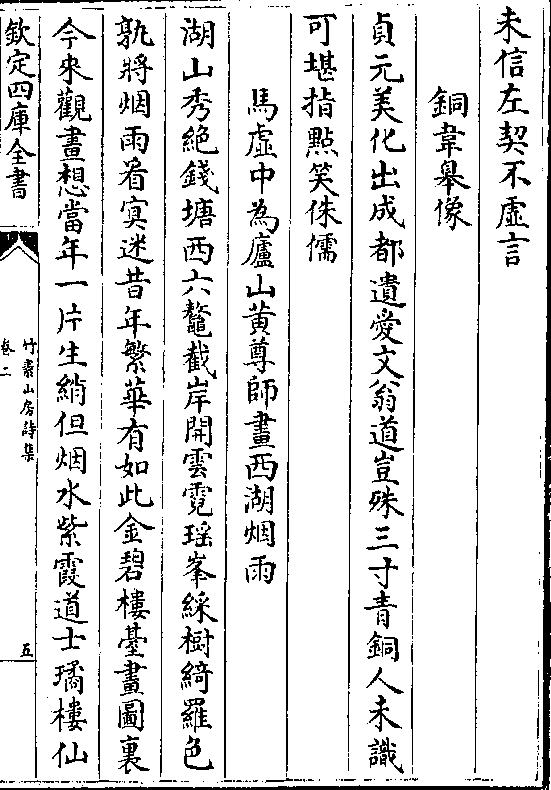 未信左契不虚言
銅韋臯像
貞元美化出成都遺愛文翁道豈殊三寸青銅人未識
可堪指㸃笑侏儒
馬虚中為廬山黄尊師畫西湖烟雨
湖山秀絶錢塘西六鼇截岸開雲霓瑶峯綵樹綺羅色
孰將烟雨看寘迷昔年繁華有如此金碧樓臺畫圖裏
今來觀畫想當年一片生綃但烟水紫霞道士璚樓仙
欽定四庫全書
竹素山房詩集
卷二
五